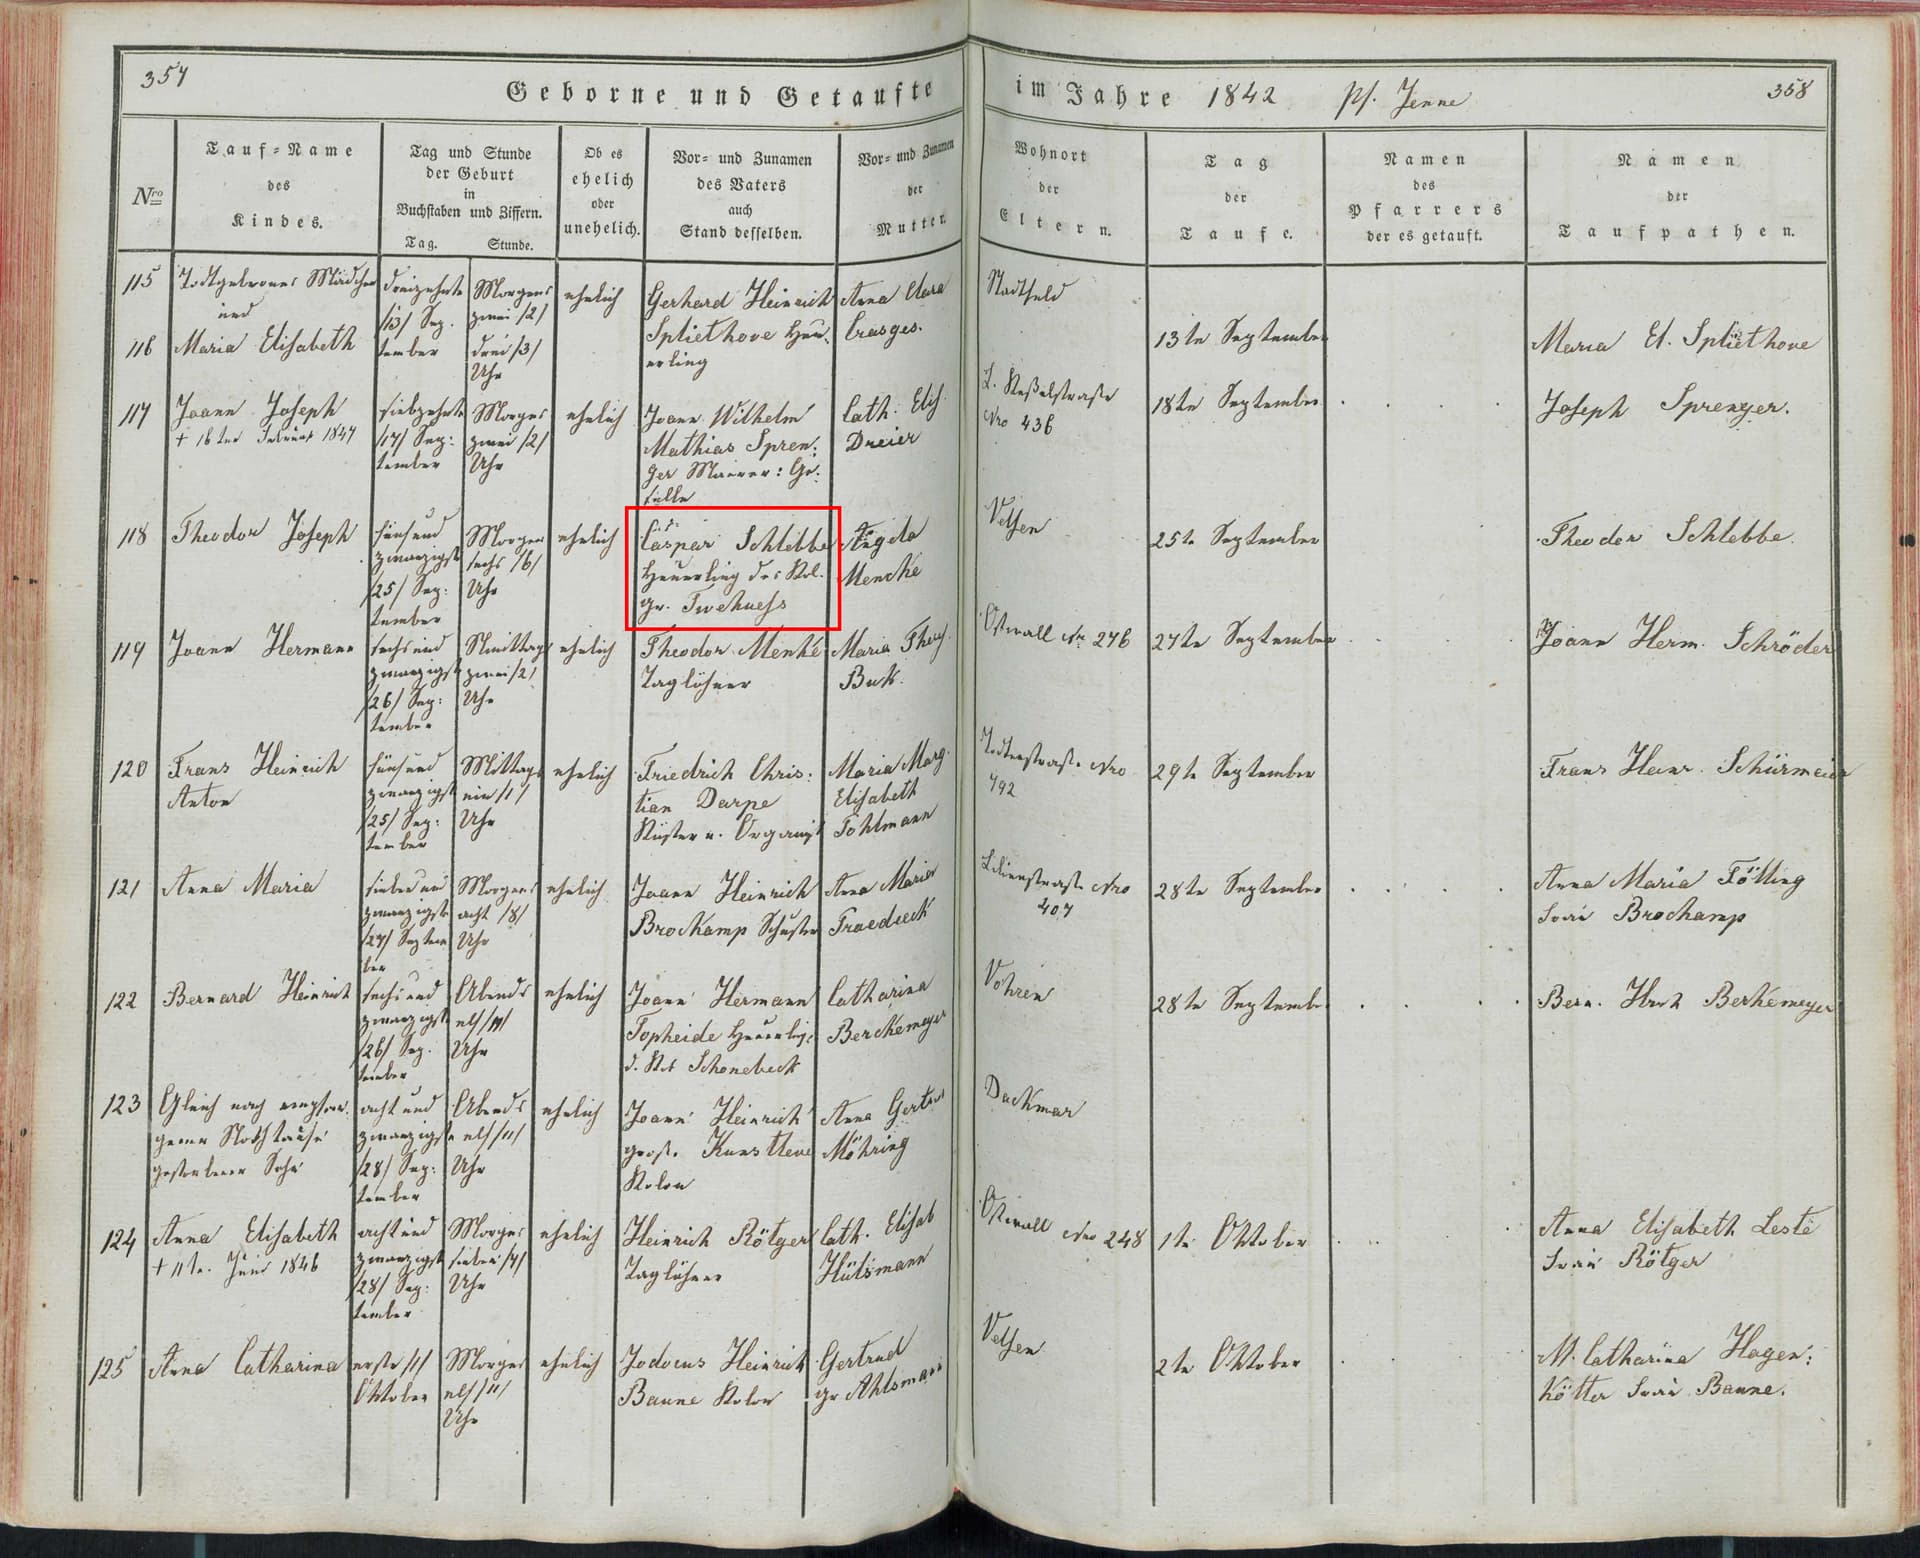 357
Geborne und Getaufte
im Jahre 1842 Pf. Jenne
358
Nro
Tauf-Name
des
Kindes.
Tag und Stunde
der Geburt
in
Buchstaben und Ziffern.
Tag. Stunde.
Ob es
ehelich
oder
unehelich.
Vor- und Zunamen
des Vaters
auch
Stand desselben.
Vor- und Zunamen
der
Mutter.
Wohnort
der
Eltern.
Tag
der
Taufe.
Namen
des
Pfarrers
der es getauft.
Namen
der
Taufpathen.
115
Todtgebornes Mädchen
und
116
Maria Elisabeth
dreizehnte
/13/ Sep.
tember
Morgens
zwei /2/
drei /3/
Uhr
ehelich
Gerhard Heinrich
Spliethove Heu-
erling
Anna Clara
Crasges.
Stadtfeld
13te September
Maria El. Spliethove
117
Joann Joseph
+ 16ten Februar 1847
siebzehnte
/17/ Sep:
tember
Morgens
zwei /2/
Uhr
ehelich
Joann Wilhelm
Mathias Spren:
ger Maurer: Ge:
selle
Cath. Elis.
Dreier
L. Keßelstraße
Nro 436
18te September
Joseph Sprenger.
118
Theodor Joseph
fünfund
zwanzigste
/25/ Sep:
tember
Morgens
sechs /6/
Uhr
ehelich
Caspar Schlebbe
Heuerling des Kol.
gr. Twehuess
Angela
Mencke
Velsen
25te September
Theodor Schlebbe.
119
Joann Hermann
sechsund
zwanzigste
/26/ Sep:
tember
Nmittags
zwei /2/
Uhr
ehelich
Theodor Menke
Taglöhner
Maria Theres.
Buk.
Ostwall Nr. 276
27te September
Joann Herm. Schröder
120
Franz Heinrich
Anton
fünfund
zwanzigste
/25/ Sep:
tember
Mittags
ein /1/
Uhr
ehelich
Friedrich Chris:
tian Darpe
Küster u. Organist
Maria Marg.
Elisabeth
Pohlmann
29te September
Franz Heinr. Schürmeier
121
Anna Maria
sieben und
zwanzigste
/27/ Septem
ber
Morgens
acht /8/
Uhr
ehelich
Joann Heinrich
Brockamp Schuster
Anna Maria
Lilienstraße Nro
407
28te September
Anna Maria Tölling
Frau Brockamp
122
Bernard Heinrich
sechsund
zwanzigste
/26/ Sep.
tember
Abends
elf /11/
Uhr
ehelich
Joann Hermann
Topheide Heuerling
d. Kol Schonebeck
Catharina
Berckemeyer
Vohren
28te September
Bern. Hnrh Berkemeyer
123
Gleich nach empfan:
gener Nothtaufe
gestorbener Sohn
acht und
zwanzigste
/28/ Sep:
tember
Abends
elf /11/
Uhr
ehelich
Joann Heinrich
große Kunstleve
Kolon
Anna Gertrud
Möhring
Dackmar
124
Anna Elisabeth
+ 11te Juni 1846
achtund
zwanzigste
/28/ Sep:
tember
Morgens
sieben /7/
Uhr
ehelich
Heinrich Rötger
Taglöhner
Cath. Elisab
Hülsmann
Ostwall Nro 248
1te Oktober
Anna Elisabeth Leste
Frau Rötger
125
Anna Catharina
erste /1/
Oktober
Morgens
elf /11/
Uhr
ehelich
Jodocus Heinrich
Baune Kolon
Gertrud
gr Ahlsmann
Velsen
2te Oktober
M. Catharina Hagen:
kötter Frau Baune.